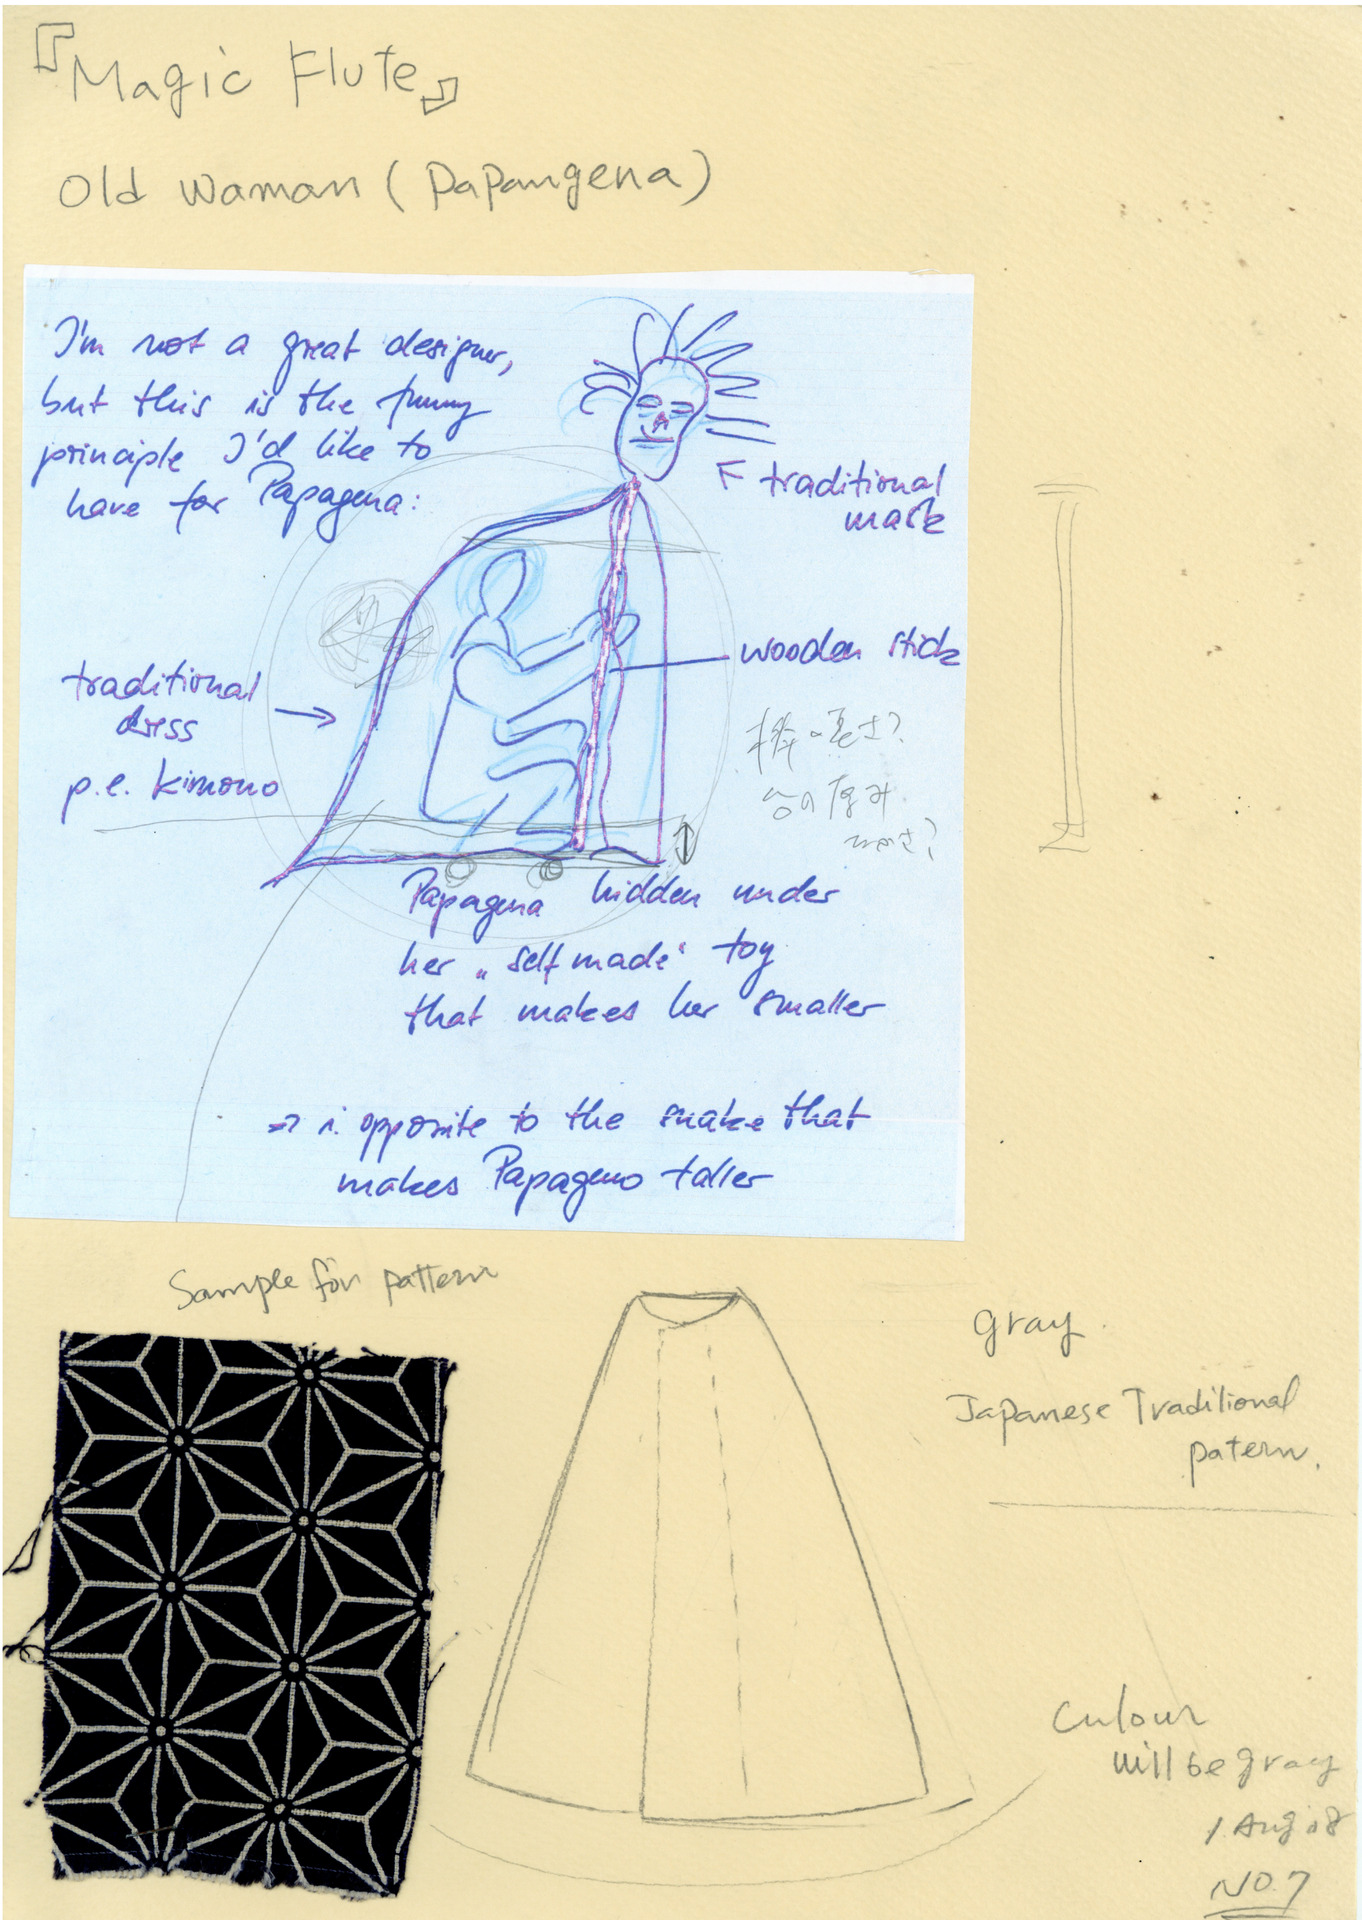 『Magic Flute』
Old Waman (Papangena)
I'm not a great designer,
but this is the funny
principle I'd like to
have for Papagena:
traditional
mask
wooden stick
traditional
dress
p.e. kimono
棒の長さ?
台の厚み
Papagena hidden under
her „self made“ toy
that makes her smaller
=> opposite to the snake that
makes Papageno taller
Sample for pattern
gray.
Japanese Traditional
patern.
Culour
will be gray
1 Aug 08
NO.7